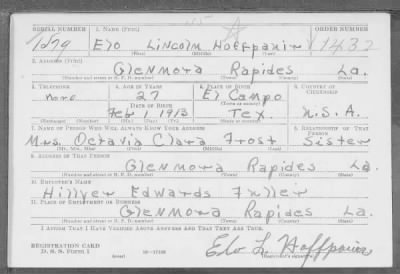 SERIAL NUMBER 1. NAME (Print) ORDER NUMBER
1279 Elo Lincoln Hoffpauir 1432
(First) (Middle) (Last)
2. ADDRESS (Print)
Glenmora Rapides La.
(Number and street or R. F. D. number) (Town) (County) (State)
3. TELEPHONE 4. AGE IN YEARS 5. PLACE OF BIRTH 6. COUNTRY OF CITIZENSHIP
none 27 El Campo
DATE OF BIRTH (Town or county)
Feb 1, 1913 Tex. U.S.A.
(Exchange) (Number) (Mo.) (Day) (Yr.) (State or country)
7. NAME OF PERSON WHO WILL ALWAYS KNOW YOUR ADDRESS 8. RELATIONSHIP OF THAT PERSON
Mrs. Octavia Clara Frost Sister
(Mr., Mrs., Miss) (First) (Middle) (Last)
9. ADDRESS OF THAT PERSON
Glenmora Rapides La.
(Number and street or R. F. D. number) (Town) (County) (State)
10. EMPLOYER'S NAME
Hillyer Edwards Fuller
11. PLACE OF EMPLOYMENT OR BUSINESS
Glenmora Rapides La.
(Number and street or R. F. D. number) (Town) (County) (State)
I AFFIRM THAT I HAVE VERIFIED ABOVE ANSWERS AND THAT THEY ARE TRUE.
REGISTRATION CARD
D. S. S. Form 1 (over) 16—17105 Elo L. Hoffpauir
(Registrant's signature)